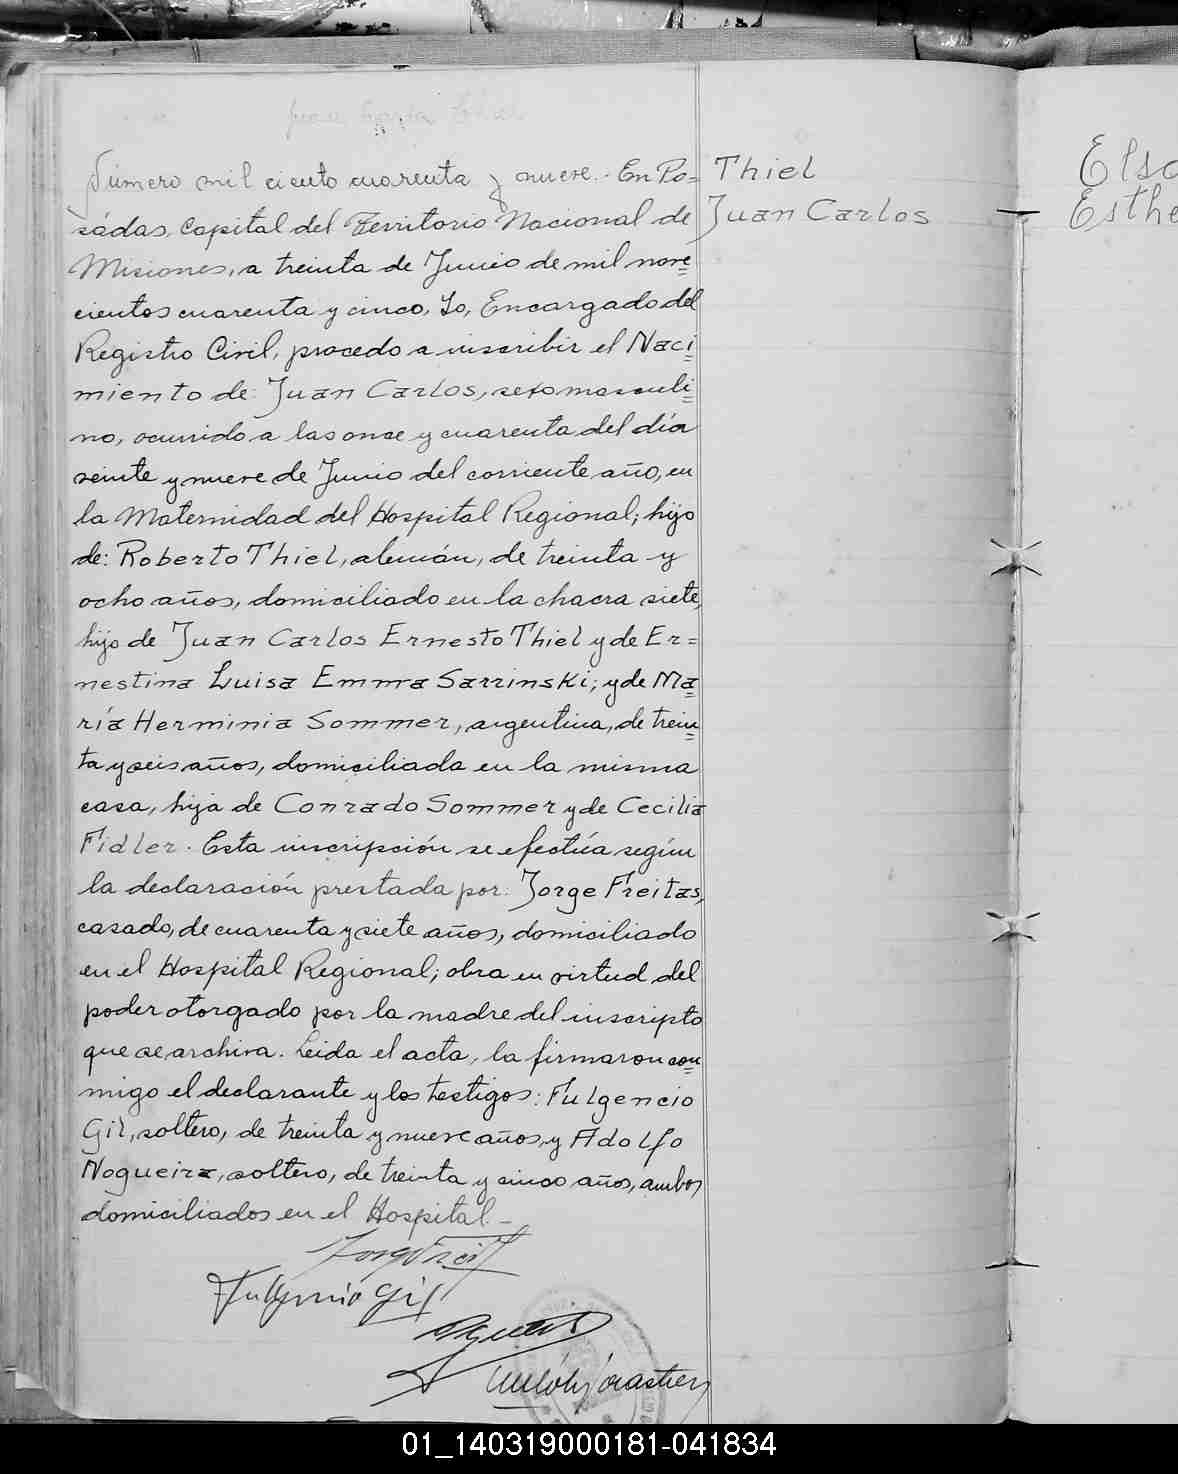 Número mil ciento cuarenta y nueve.- En Po=
sadas, Capital del Territorio Nacional de
Misiones, a treinta de Junio de mil nove=
cientos cuarenta y cinco, Yo, Encargado del
Registro Civil, procedo a inscribir el Naci=
miento de: Juan Carlos, sexo masculi=
no, ocurrido a las once y cuarenta del día
veinte y nueve de Junio del corriente año, en
la Maternidad del Hospital Regional; hijo
de: Roberto Thiel, alemán, de treinta y
ocho años, domiciliado en la chacra siete,
hijo de Juan Carlos Ernesto Thiel y de Er=
nestina Luisa Emma Sarrinski; y de Ma=
ría Herminia Sommer, argentina, de trein=
ta y seis años, domiciliada en la misma
casa, hija de Conrado Sommer y de Cecilia
Fidler. Esta inscripción se efectúa según
la declaración prestada por: Jorge Freitas,
casado, de cuarenta y siete años, domiciliado
en el Hospital Regional; obra en virtud del
poder otorgado por la madre del inscripto
que se archiva. Leida el acta, la firmaron con=
migo el declarante y los testigos: Fulgencio
Gil, soltero, de treinta y nueve años, y Adolfo
Nogueira, soltero, de treinta y cinco años, ambos
domiciliados en el Hospital.-
Fulgencio Gil
Thiel
Juan Carlos
Elsa
Esthe
01_140319000181-041834